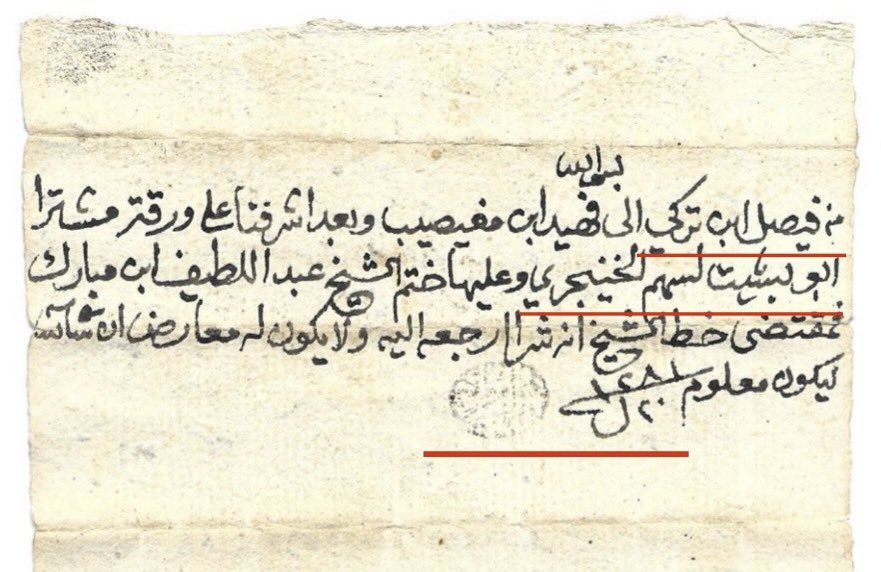 بسم الله
من فيصل ابن تركي الى فهيد ابن مغيصيب وبعد اشرفنا على ورقت مشترا
ابو بشيت لسهم الخنيجري وعليها ختم الشيخ عبد اللطيف ابن مبارك
فمقتضى خط الشيخ انه شرا ارجعه اليه ولا يكون له معارض ان شا الله
ليكون معلوم ١٢٨١
٢٠ ل